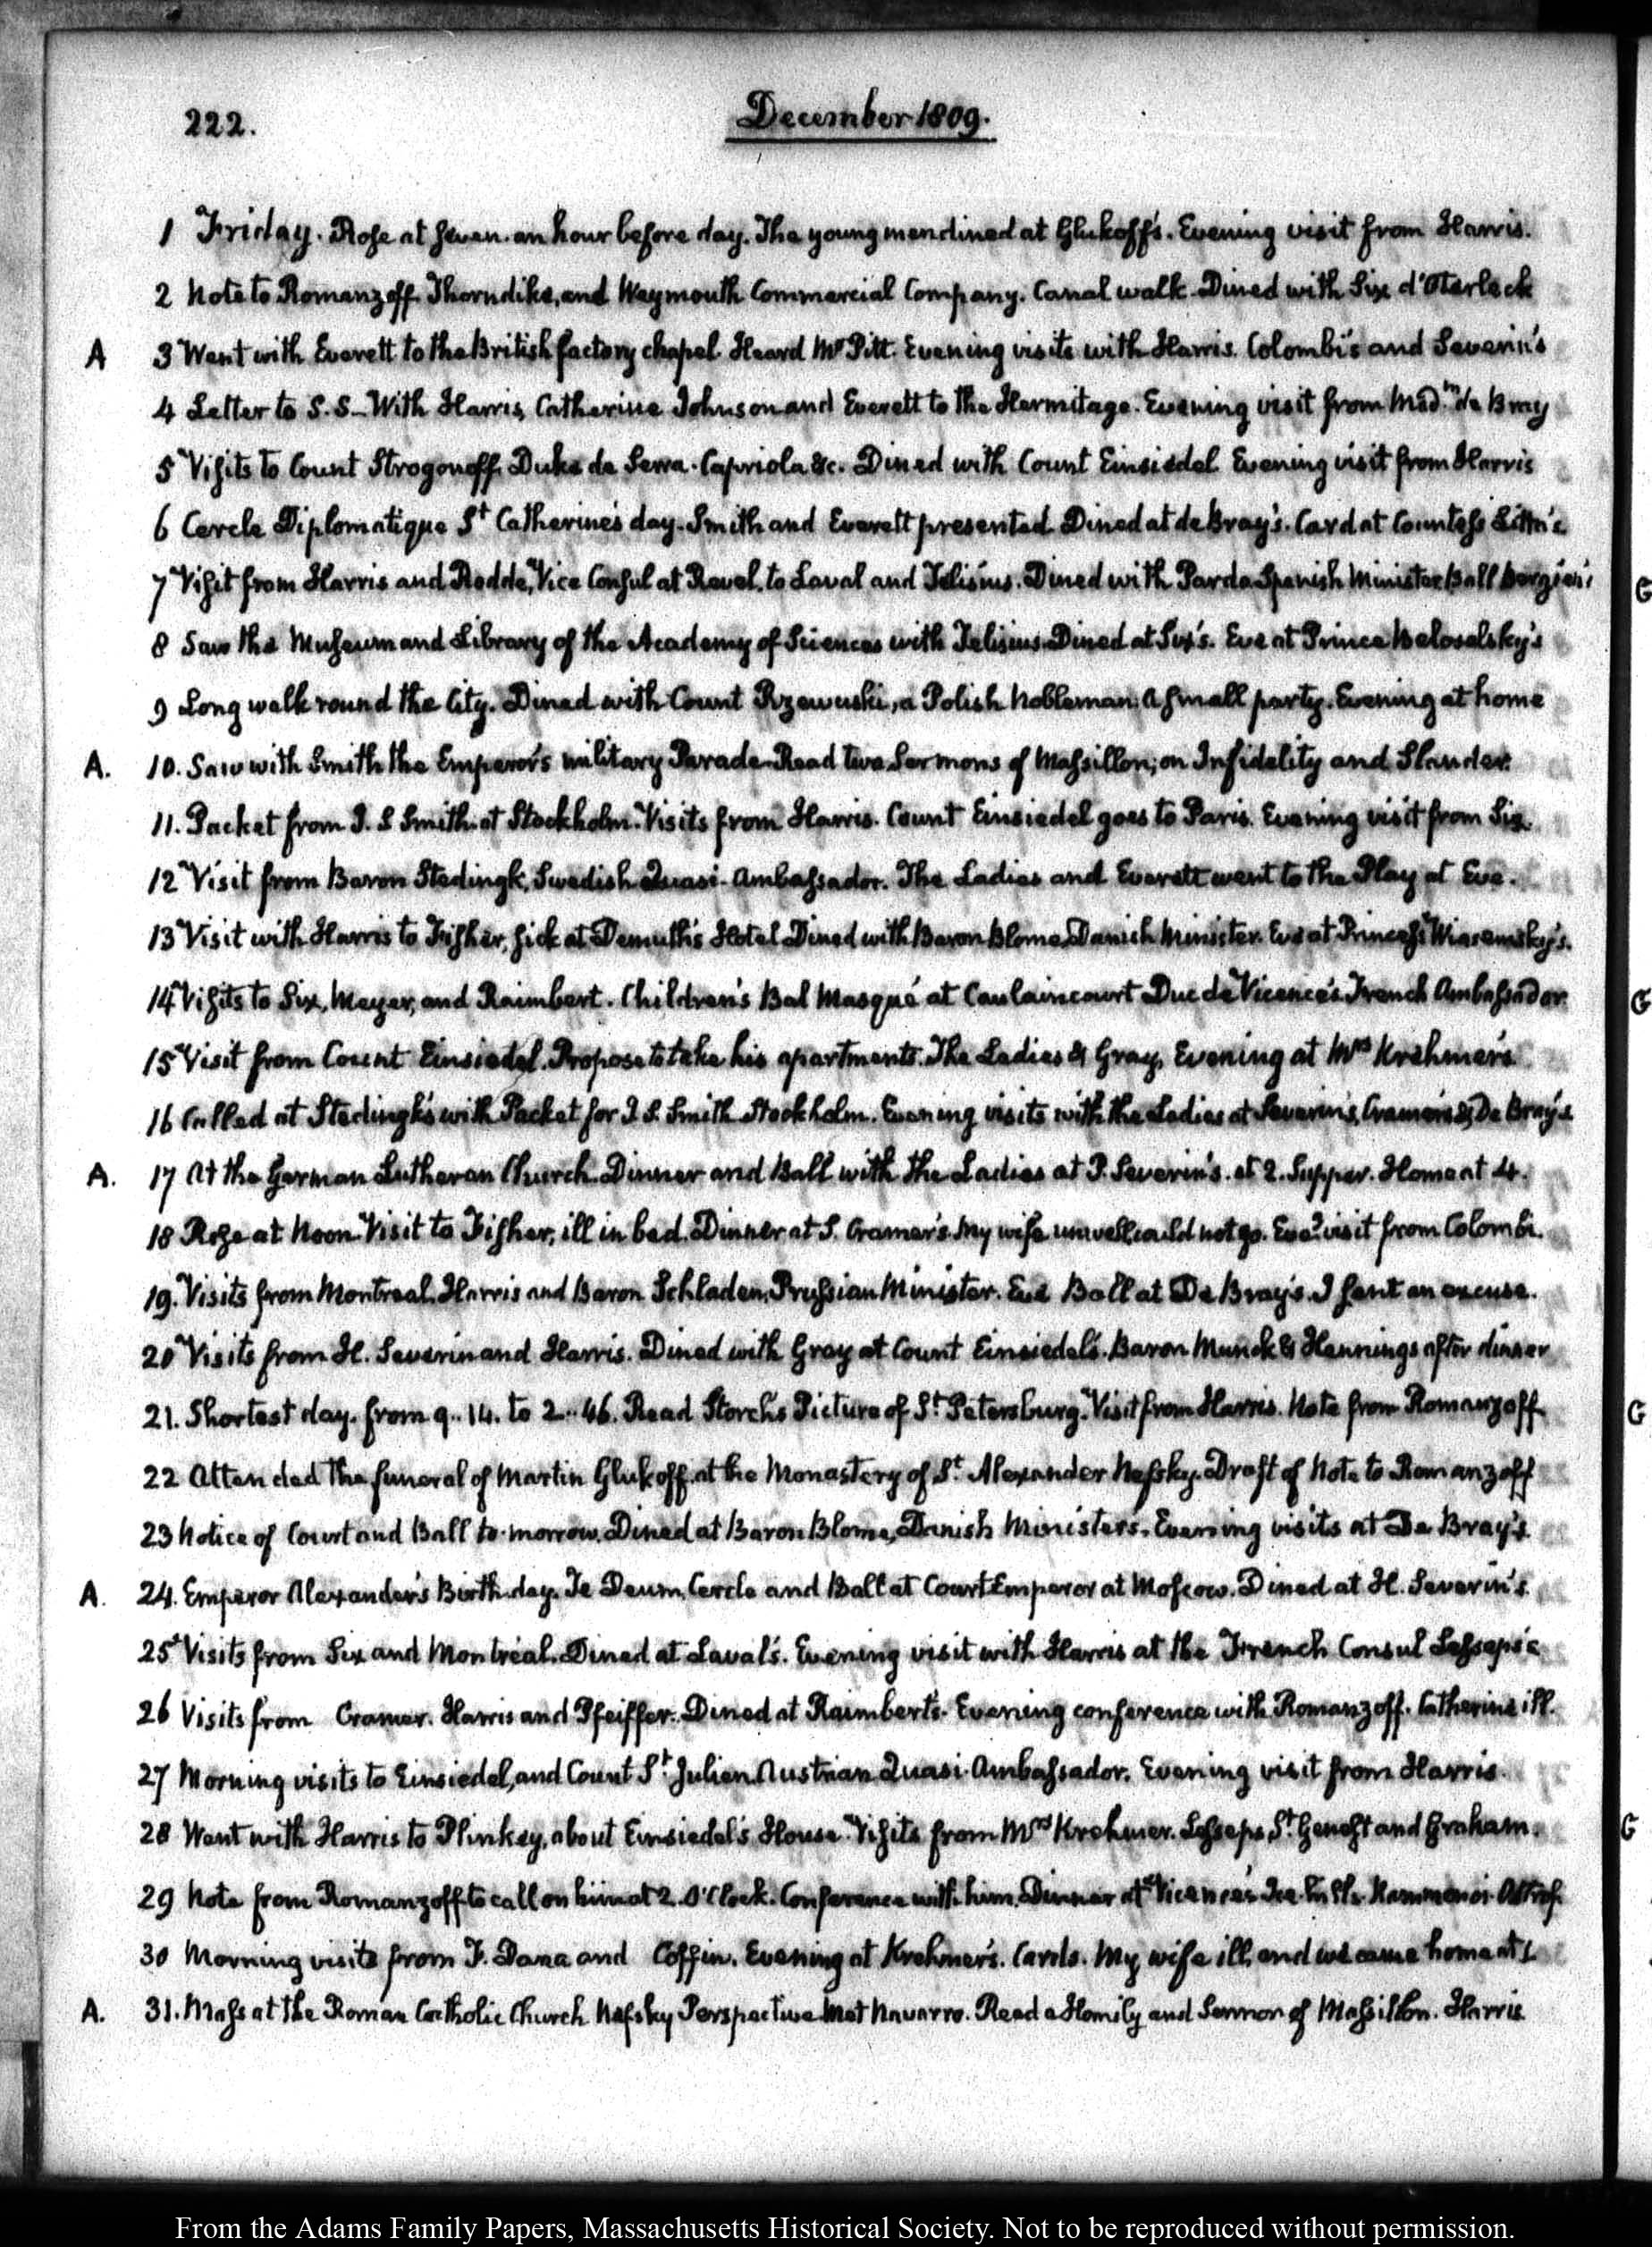 222.
December 1809.
1 Friday. Rose at seven. an hour before day. The young men dined at Glukoff's. Evening visit from Harris.
2 Note to Romanzoff. Thorndike, and Weymouth Commercial Company. Canal walk. Dined with Six d'Oterbeck
A 3 Went with Everett to the British factory chapel. Heard Mr Pitt. Evening visits with Harris. Colombi's and Severin's
4 Letter to S. S. With Harris, Catherine Johnson and Everett to the Hermitage. Evening visit from Madme de Bray
5 Visits to Count Strogonoff. Duke de Serra-Capriola &c. Dined with Count Einsiedel. Evening visit from Harris
6 Cercle Diplomatique St Catherine's day. Smith and Everett presented. Dined at de Bray's. Card at Countess Litta's
7 Visit from Harris and Rodde, Vice Consul at Revel. to Laval and Jelisius. Dined with Pardo Spanish Minister. Ball
8 Saw the Museum and Library of the Academy of Sciences with Jelisius. Dined at Six's. Eve at Prince Beloselsky's
9 Long walk round the City. Dined with Count Rzewuski, a Polish Nobleman. A small party. Evening at home
A. 10. Saw with Smith the Emperor's military Parade. Read two Sermons of Massillon; on Infidelity and Slander.
11. Packet from J. S. Smith at Stockholm. Visits from Harris. Count Einsiedel goes to Paris. Evening visit from Six.
12 Visit from Baron Stedingk, Swedish Quasi-Ambassador. The Ladies and Everett went to the Play at Eve.
13 Visit with Harris to Fisher, sick at Demuth's Hotel. Dined with Baron Blome, Danish Minister. Eve at Princess Wiasemsky's.
14 Visits to Six, Meyer, and Raimbert. Children's Bal Masqué at Caulaincourt Duc de Vicence's French Ambassador
15 Visit from Count Einsiedel. Propose to take his apartments. The Ladies & Gray, Evening at Mrs Krehmer's
16 Called at Stedingk's with Packet for J. S. Smith Stockholm. Evening visits with the Ladies at Severin's, Cramer's & De Bray's
A. 17 At the German Lutheran Church. Dinner and Ball with the Ladies at P. Severin's. at 2. Supper. Home at 4.
18 Rose at Noon. Visit to Fisher, ill in bed. Dinner at S. Cramer's. My wife unwell could not go. Eveg visit from Colombi.
19. Visits from Montreal, Harris and Baron Schladen, Prussian Minister. Eve Ball at De Bray's. I sent an excuse.
20 Visits from H. Severin and Harris. Dined with Gray at Count Einsiedel's. Baron Munck & Hennings after dinner
21. Shortest day. from 9..14. to 2..46. Read Storch's Picture of St Petersburg. Visit from Harris. Note from Romanzoff
22 Attended the funeral of Martin Glukoff, at the Monastery of St Alexander Nefsky. Draft of Note to Romanzoff
23 Notice of Court and Ball to-morrow. Dined at Baron Blome, Danish Ministers. Evening visits at De Bray's
A. 24. Emperor Alexander's Birth-day. Te Deum, Cercle and Ball at Court. Emperor at Moscow. Dined at H. Severin's
25 Visits from Six and Montréal. Dined at Laval's. Evening visit with Harris at the French Consul Lesseps's
26 Visits from Cramer. Harris and Pfeiffer. Dined at Raimbert's. Evening conference with Romanzoff. Catherine ill.
27 Morning visits to Einsiedel, and Count St Julien Austrian Quasi-Ambassador. Evening visit from Harris.
28 Went with Harris to Plinkey, about Einsiedel's House. Visits from Mrs Krehmer. Lesseps, St Genest and Graham.
29 Note from Romanzoff to call on him at 2. O'Clock. Conference with him. Dinner at Vicence's Ice-hills. Kammenoi-Ostrof.
30 Morning visits from F. Dana and Coffin. Evening at Krehmer's. Cards. My wife ill, and we came home at 1.
A. 31. Mass at the Roman Catholic Church Nefsky Perspective. Met Navarro. Read a Homily and Sermon of Massillon. Harris
G
G
G
G
From the Adams Family Papers, Massachusetts Historical Society. Not to be reproduced without permission.